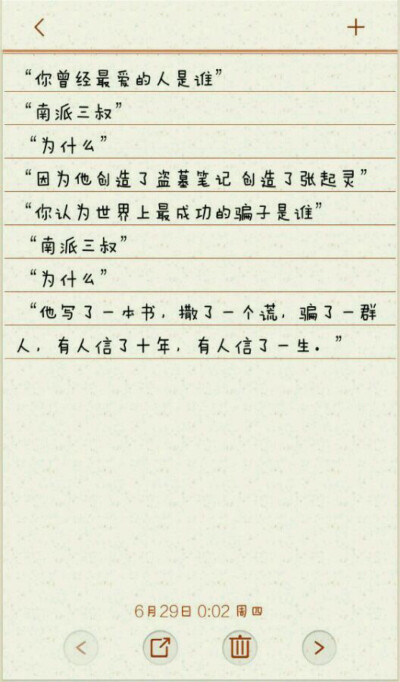 “你曾经最爱的人是谁”
“南派三叔”
“为什么”
“因为他创造了盗墓笔记 创造了张起灵”
“你认为世界上最成功的骗子是谁”
“南派三叔”
“为什么”
“他写了一本书，撒了一个谎，骗了一群
人，有人信了十年，有人信了一生．”
6月29日 0:02 周四